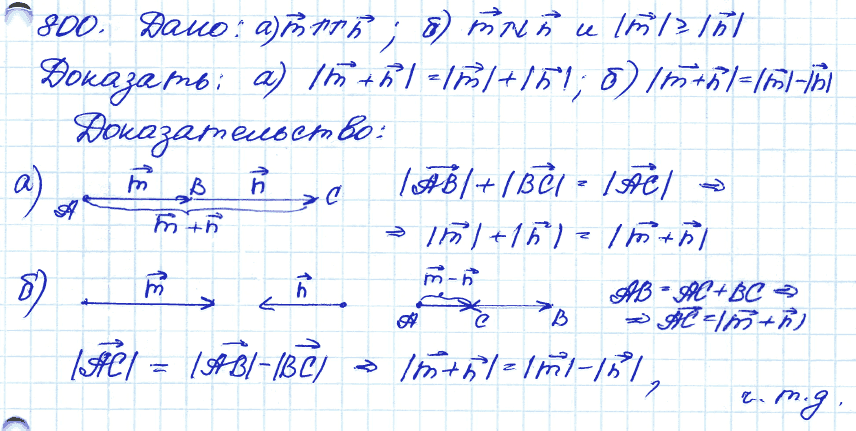 800. Дано: а) m⃗ ↑↑ n⃗ ; б) m⃗ ↑↓ n⃗ и |m⃗| ≥ |n⃗|
Доказать: а) |m⃗ + n⃗| = |m⃗| + |n⃗|; б) |m⃗ + n⃗| = |m⃗| - |n⃗|
Доказательство:
а) A m⃗ B n⃗ C m⃗ + n⃗ |AB⃗| + |BC⃗| = |AC⃗| ⇒
⇒ |m⃗| + |n⃗| = |m⃗ + n⃗|
б) m⃗ n⃗ m⃗ - n⃗ A C B AB = AC + BC ⇒
⇒ AC⃗ = |m⃗ + n⃗|
|AC⃗| = |AB⃗| - |BC⃗| ⇒ |m⃗ + n⃗| = |m⃗| - |n⃗|,
ч. т. д.